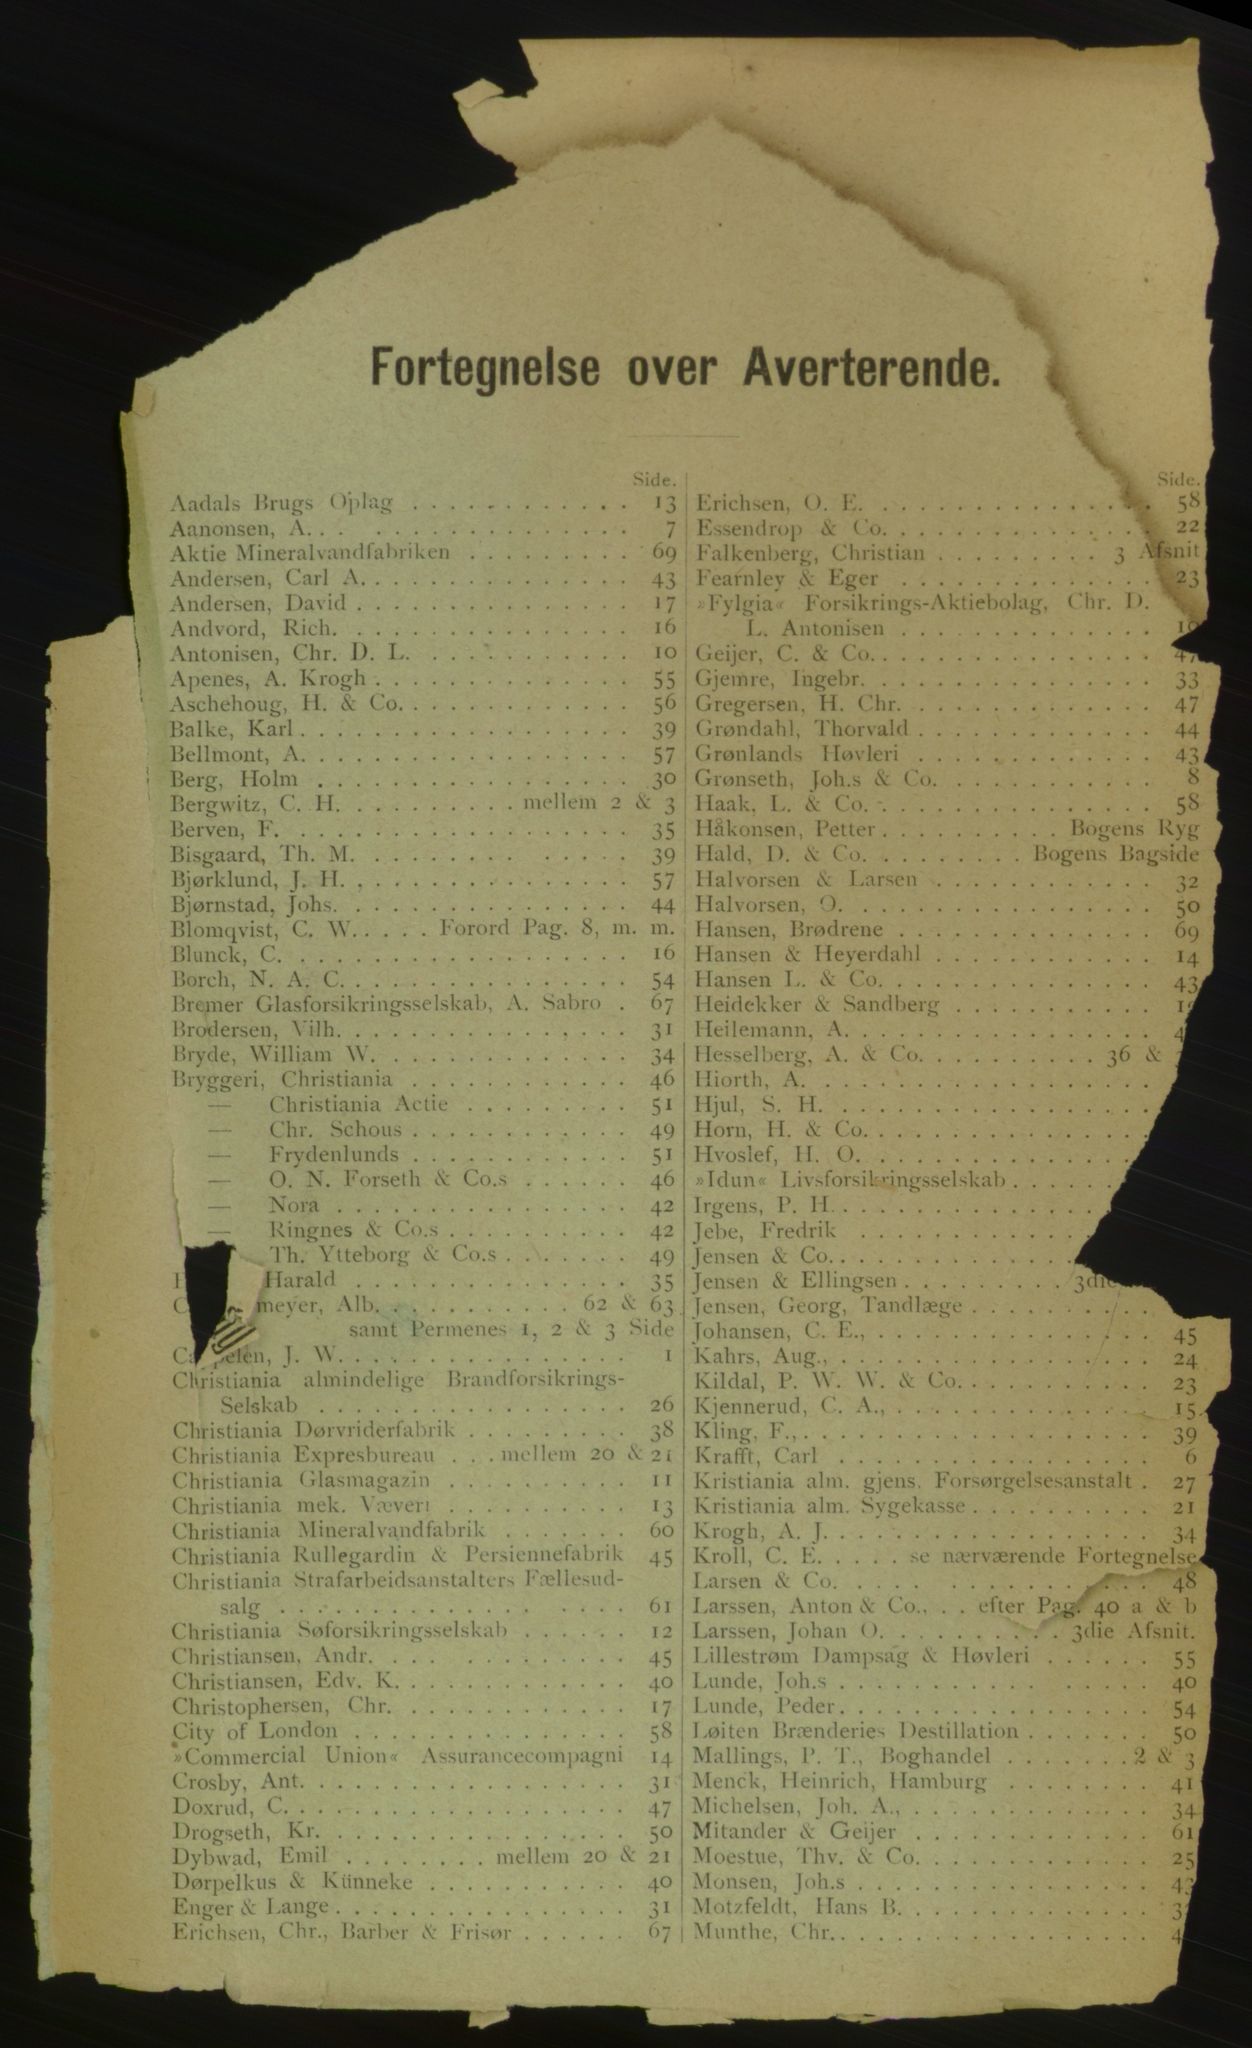 Fortegnelse over Averterende.
Side.
Aadals Brugs Oplag . . . . . . . . . . . . 13
Aanonsen, A. . . . . . . . . . . . . . . . 7
Aktie Mineralvandfabriken . . . . . . . . . 69
Andersen, Carl A. . . . . . . . . . . . . . 43
Andersen, David . . . . . . . . . . . . . . 17
Andvord, Rich. . . . . . . . . . . . . . . 16
Antonisen, Chr. D. L. . . . . . . . . . . . 10
Apenes, A. Krogh . . . . . . . . . . . . . 55
Aschehoug, H. & Co. . . . . . . . . . . . . 56
Balke, Karl . . . . . . . . . . . . . . . . 39
Bellmont, A. . . . . . . . . . . . . . . . 57
Berg, Holm . . . . . . . . . . . . . . . . 30
Bergwitz, C. H. . . . . . . . . mellem 2 & 3
Berven, F. . . . . . . . . . . . . . . . . 35
Bisgaard, Th. M. . . . . . . . . . . . . . 39
Bjørklund, J. H. , . . . . . . . . . . . . 57
Bjørnstad, Johs. . . . . . . . . . . . . . 44
Blomqvist, C. W. . . . . Forord Pag. 8, m. m.
Blunck, C. . . . . . . . . . . . . . . . . 16
Borch, N. A. C. . . . . . . . . . . . . . . 54
Bremer Glasforsikringsselskab, A. Sabro . 67
Brodersen, Vilh. . . . . . . . . . . . . . 31
Bryde, William W. . . . . . . . . . . . . . 34
Bryggeri, Christiania . . . . . . . . . . . 46
— Christiania Actie . . . . . . . . . 51
— Chr. Schous . . . . . . . . . . . . 49
— Frydenlunds . . . . . . . . . . . . 51
— O. N. Forseth & Co.s . . . . . . 46
— Nora . . . . . . . . . . . . . . . 42
— Ringnes & Co.s . . . . . . . . . . 42
Th. Ytteborg & Co.s . . . . . . . 49
Harald . . . . . . . . . . . . . . . 35
meyer, Alb. . . . . . . . . . . 62 & 63
samt Permenes 1, 2 & 3 Side
Cappelen, J. W. . . . . . . . . . . . . . . 1
Christiania almindelige Brandforsikrings-
Selskab . . . . . . . . . . . . . . . . 26
Christiania Dørvriderfabrik . . . . . . . . 38
Christiania Expresbureau . . . mellem 20 & 21
Christiania Glasmagazin . . . . . . . . . . 11
Christiania mek. Væveri . . . . . . . . . . 13
Christiania Mineralvandfabrik . . . . . . . 60
Christiania Rullegardin & Persiennefabrik 45
Christiania Strafarbeidsanstalters Fællesud-
salg . . . . . . . . . . . . . . . . . 61
Christiania Søforsikringsselskab . . . . . 12
Christiansen, Andr. . . . . . . . . . . . . 45
Christiansen, Edv. K. . . . . . . . . . . . 40
Christophersen, Chr. . . . . . . . . . . . 17
City of London . . . . . . . . . . . . . . 58
»Commercial Union« Assurancecompagni 14
Crosby, Ant. . . . . . . . . . . . . . . . 31
Doxrud, C. . . . . . . . . . . . . . . . . 47
Drogseth, Kr. . . . . . . . . . . . . . . . 50
Dybwad, Emil . . . . . . . . mellem 20 & 21
Dørpelkus & Künneke . . . . . . . . . . . 40
Enger & Lange . . . . . . . . . . . . . . . 31
Erichsen, Chr., Barber & Frisør . . . . . . 67
Side.
Erichsen, O. E. . . . . . . . . . . . . . . 58
Essendrop & Co. . . . . . . . . . . . . . . 22
Falkenberg, Christian . . . . . . . . 3 Afsnit
Fearnley & Eger . . . . . . . . . . . . . . 23
»Fylgia« Forsikrings-Aktiebolag, Chr. D.
L. Antonisen . . . . . . . . . . . . . 10
Geijer, C. & Co. . . . . . . . . . . . . . 47
Gjemre, Ingebr. . . . . . . . . . . . . . . 33
Gregersen, H. Chr. . . . . . . . . . . . . 47
Grøndahl, Thorvald . . . . . . . . . . . . 44
Grønlands Høvleri . . . . . . . . . . . . . 43
Grønseth, Joh.s & Co. . . . . . . . . . . . 8
Haak, L. & Co. . . . . . . . . . . . . . . 58
Håkonsen, Petter . . . . . . . . . . Bogens Ryg
Hald, D. & Co. . . . . . . . . Bogens Bagside
Halvorsen & Larsen . . . . . . . . . . . . 32
Halvorsen, O. . . . . . . . . . . . . . . . 50
Hansen, Brødrene . . . . . . . . . . . . . 69
Hansen & Heyerdahl . . . . . . . . . . . . 14
Hansen L. & Co. . . . . . . . . . . . . . . 43
Heidekker & Sandberg . . . . . . . . . . .
Heilemann, A. . . . . . . . . . . . . . . .
Hesselberg, A. & Co. . . . . . . . . . 36 &
Hiorth, A. . . . . . . . . . . . . . . . .
Hjul, S. H. . . . . . . . . . . . . . . .
Horn, H. & Co. . . . . . . . . . . . . . .
Hvoslef, H. O. . . . . . . . . . . . . . .
»Idun« Livsforsikringsselskab . . . . . .
Irgens, P. H. . . . . . . . . . . . . . .
Jebe, Fredrik . . . . . . . . . . . . . .
Jensen & Co. . . . . . . . . . . . . . .
Jensen & Ellingsen . . . . . . . . . 3die
Jensen, Georg, Tandlæge . . . . . . . . . .
Johansen, C. E., . . . . . . . . . . . . . 45
Kahrs, Aug., . . . . . . . . . . . . . . . 24
Kildal, P. W. W. & Co. . . . . . . . . . . 23
Kjennerud, C. A., . . . . . . . . . . . . . 15
Kling, F., . . . . . . . . . . . . . . . . 39
Krafft, Carl . . . . . . . . . . . . . . . 6
Kristiania alm. gjens. Forsørgelsesanstalt . 27
Kristiania alm. Sygekasse . . . . . . . . . 21
Krogh, A. J. . . . . . . . . . . . . . . . 34
Kroll, C. E. . . . . . se nærværende Fortegnelse
Larsen & Co. . . . . . . . . . . . . . . . 48
Larssen, Anton & Co., . . efter Pag. 40 a & b
Larssen, Johan O. . . . . . . . . . 3die Afsnit.
Lillestrøm Dampsag & Høvleri . . . . . . 55
Lunde, Joh.s . . . . . . . . . . . . . . . 40
Lunde, Peder . . . . . . . . . . . . . . . 54
Løiten Brænderies Destillation . . . . . . 50
Mallings, P. T., Boghandel . . . . . . . 2 & 3
Menck, Heinrich, Hamburg . . . . . . . . . 41
Michelsen, Joh. A., . . . . . . . . . . . . 34
Mitander & Geijer . . . . . . . . . . . . . 61
Moestue, Thv. & Co. . . . . . . . . . . . . 25
Monsen, Joh.s . . . . . . . . . . . . . . . 43
Motzfeldt, Hans B. . . . . . . . . . . . .
Munthe, Chr. . . . . . . . . . . . . . . .